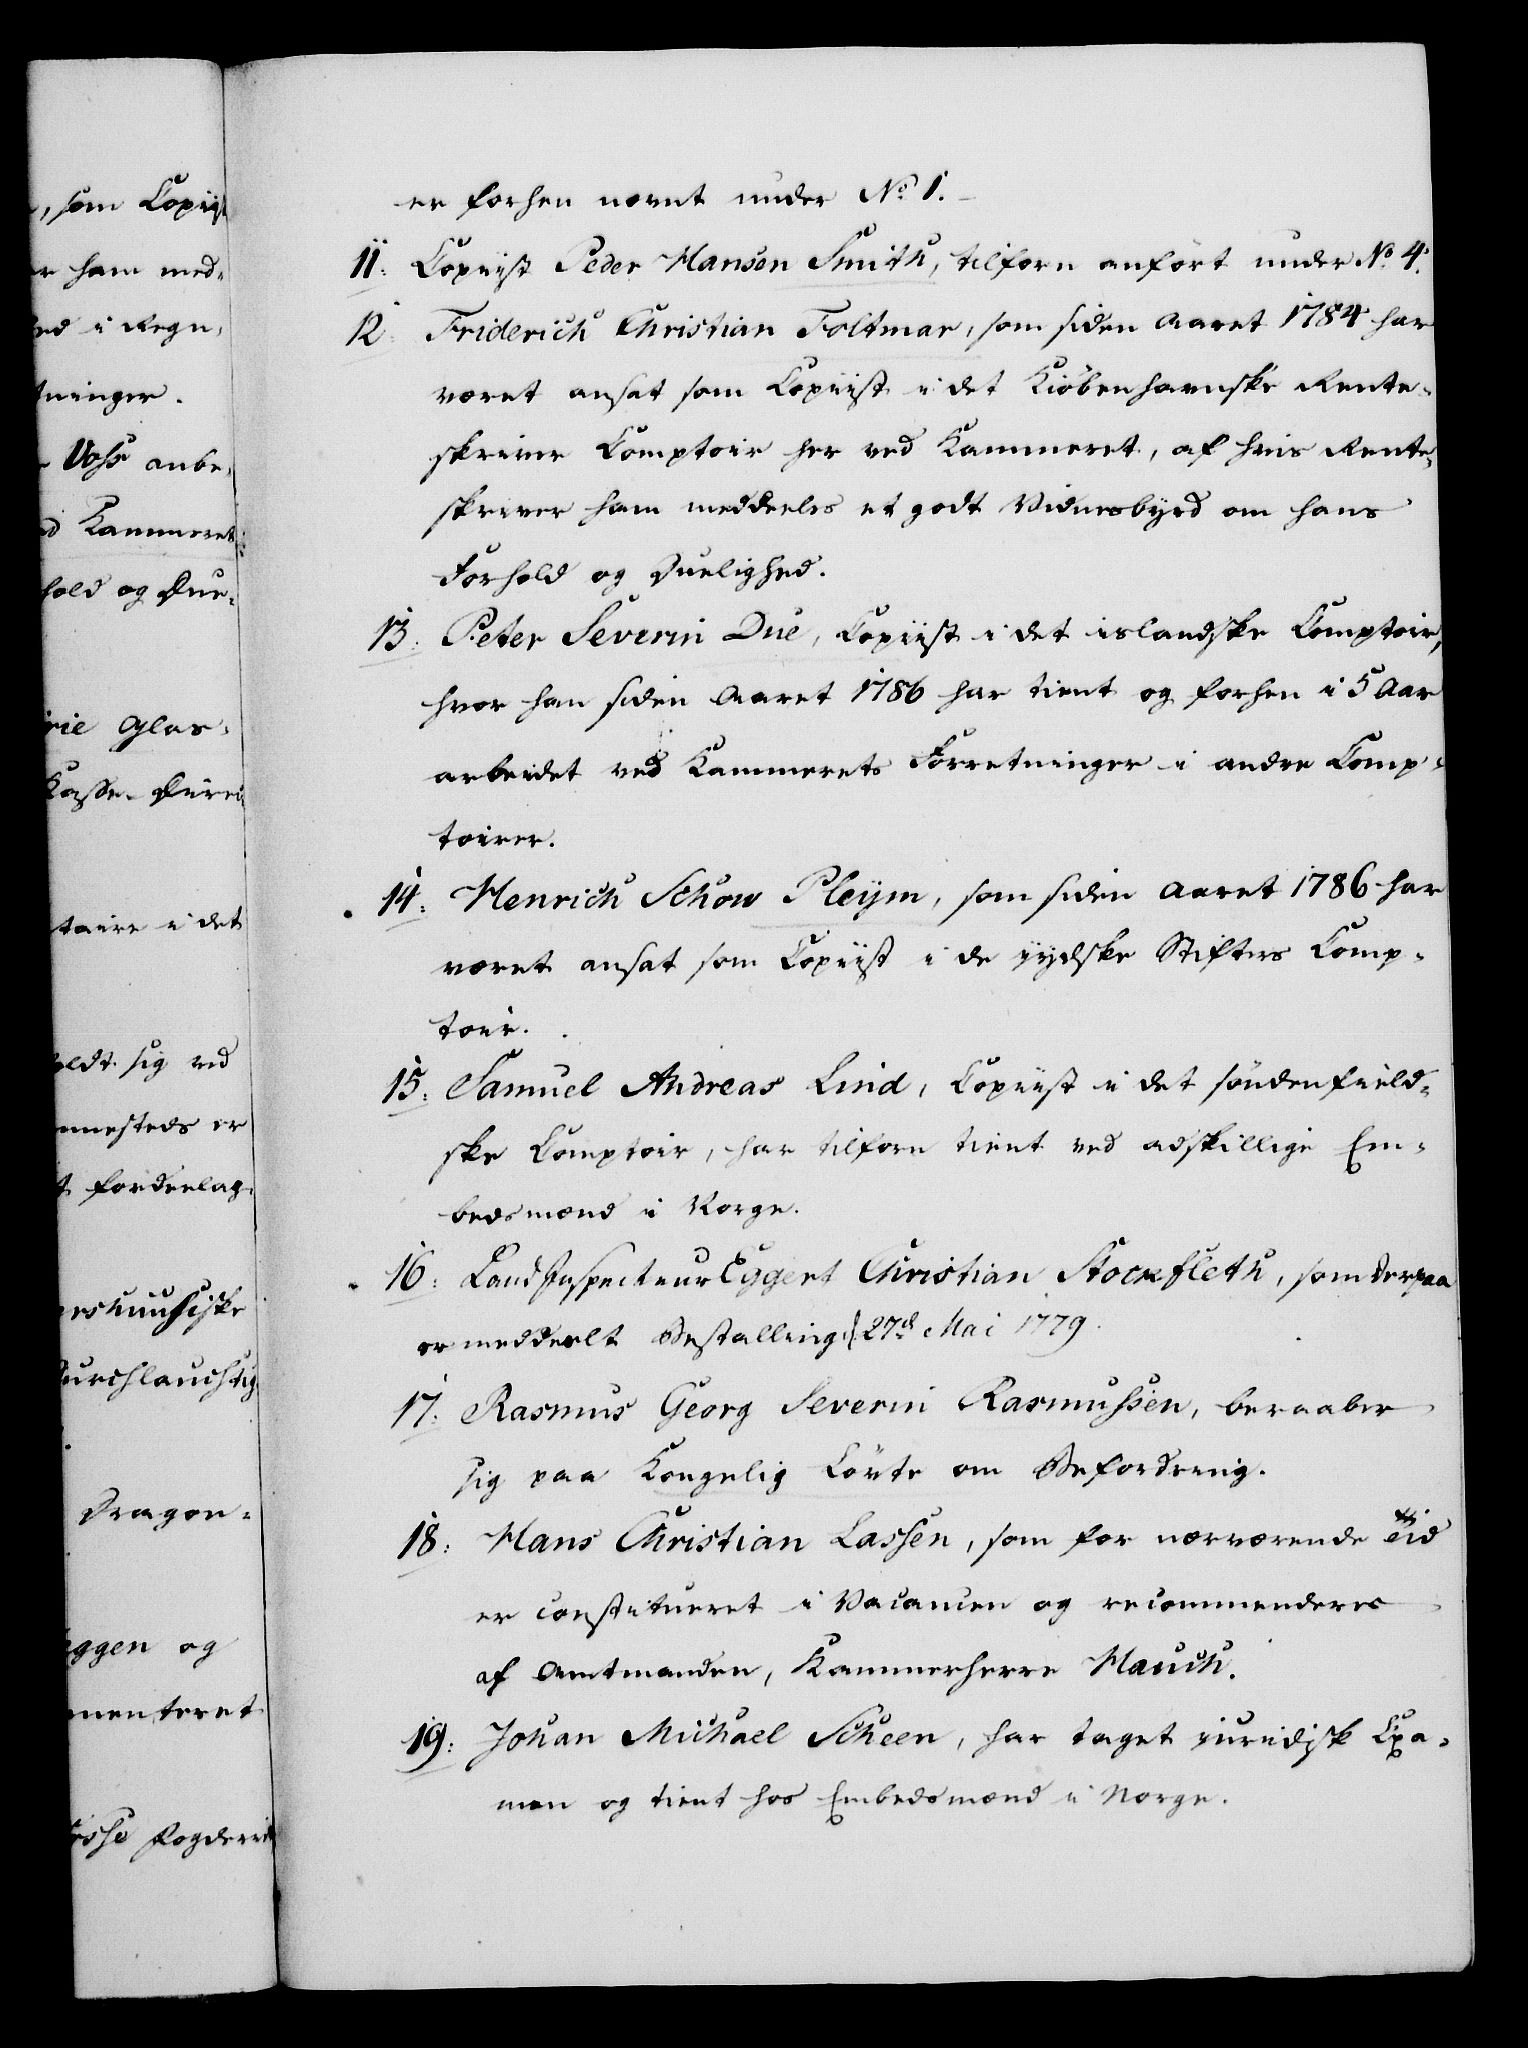 , som Copiist
er ham med-
hed i Regn-
tninger.
Voss anbe-
d Kammeret
hold og Due-
rie Glas-
Kasse-Direc
taire i det
oldt sig ved
nnesteds er
t fordeelag-
urchlauchtig
Dragon-
eggen og
menteret
Fogderie
er forhen nævnt under No. 1. -
11. Copiist Peder Hansen Smith, tilforn anført under No. 4.
12. Friderich Christian Foltmar, som siden Aaret 1784 har
været ansat som Copiist i det Kiøbenhavnske Rente-
skriver Comptoir her ved Kammeret, af hvis Rente-
skriver ham meddeeles et godt Vidnesbyrd om hans
Forhold og Duelighed.
13. Peter Severin Due, Copiist i det islandske Comptoir,
hvor han siden Aaret 1786 har tient og forhen i 5 Aar
arbeidet ved Kammerets Forretninger i andre Comp-
toirer.
14. Henrich Schow Pleÿm, som siden Aaret 1786 har
været ansat som Copiist i de jydske Stifters Comp-
toir.
15. Samuel Andreas Lind, Copiist i det søndenfield-
ske Comptoir, har tilforn tient ved adskillige Em-
bedsmænd i Norge.
16. Land Inspecteur Eggert Christian Stockfleth, som derpaa
er meddeelt Bestalling 27de Mai 1779.
17. Rasmus Georg Severin Rasmussen, beraaber
sig paa Kongelig Løvte om Befordring.
18. Hans Christian Lassen, som for nærværende Tid
er constitueret i Vacancen og recommenderes
af Amtmanden, Kammerherre Hauch.
19. Johan Michael Scheen, har taget juridisk Exa-
men og tient hos Embedsmænd i Norge.